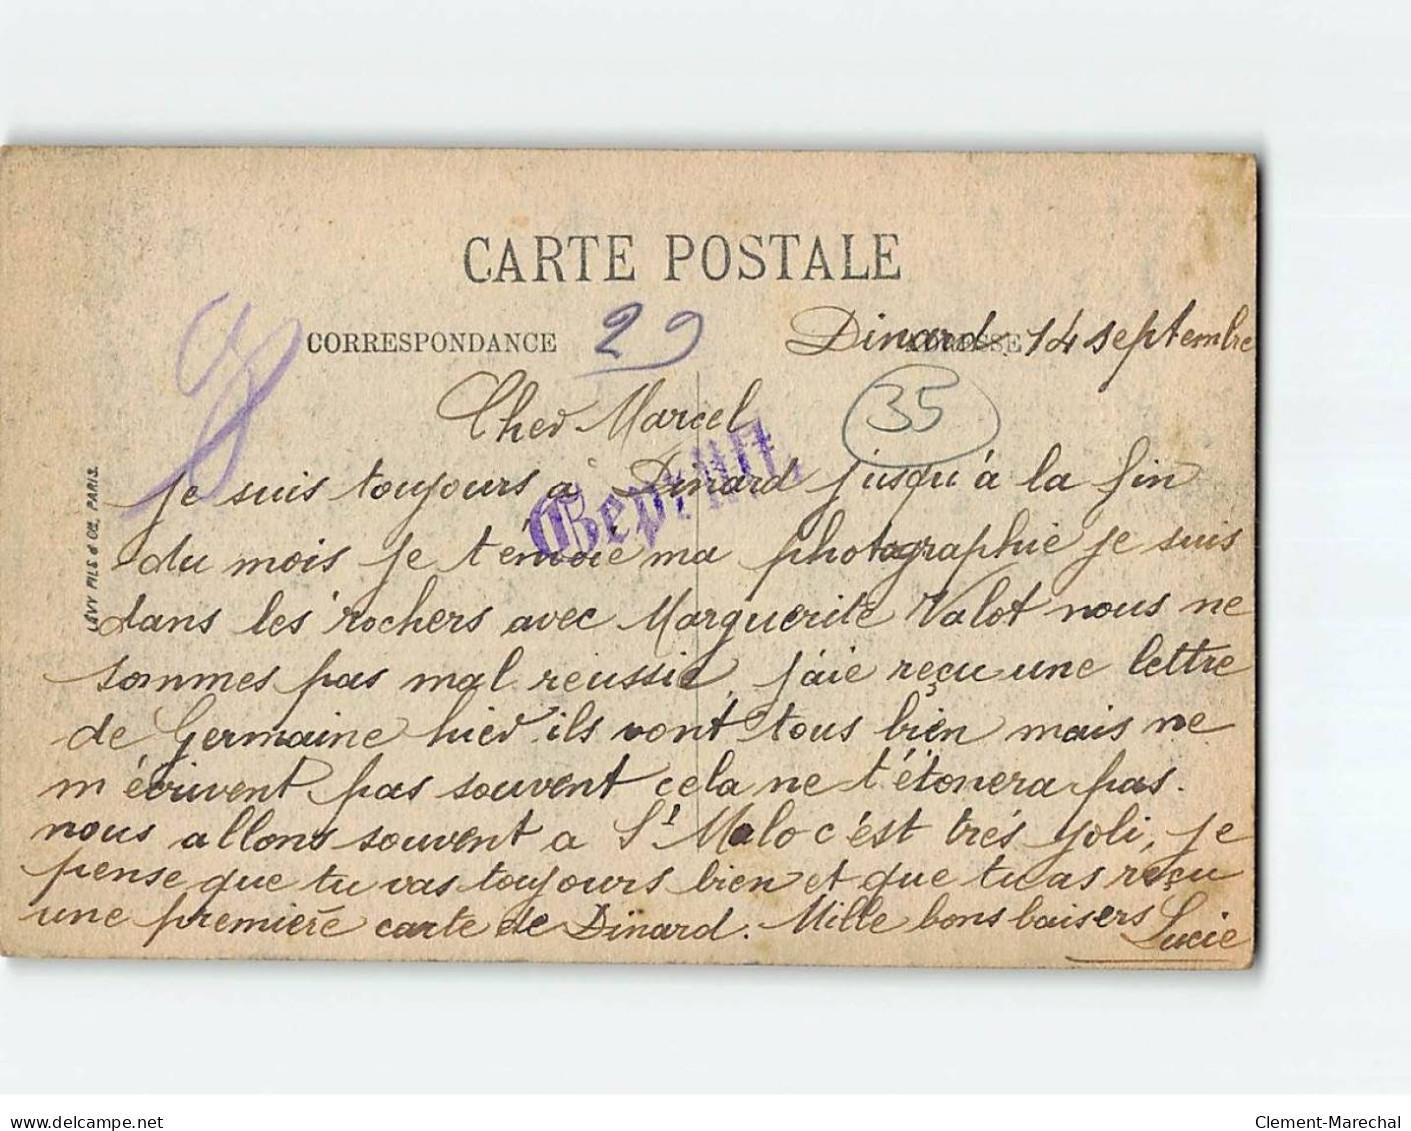 CARTE POSTALE
CORRESPONDANCE
29
ADRESSE
Dinard 14 septembre
35
Cher Marcel
Geprüft.
LÉVY FILS & Cie, PARIS.
je suis toujours à Dinard jusqu'à la fin
du mois je t'envoie ma photographie je suis
dans les rochers avec Marguerite Valot nous ne
sommes pas mal reussie, j'aie reçu une lettre
de Germaine hier ils vont tous bien mais ne
m'écrivent pas souvent cela ne t'étonera pas.
nous allons souvent a St Malo c'ést trés joli, je
pense que tu vas toujours bien et que tu as reçu
une premiere carte de Dinard. Mille bons baisers
Lucie
www.delcampe.net
Clement-Marechal